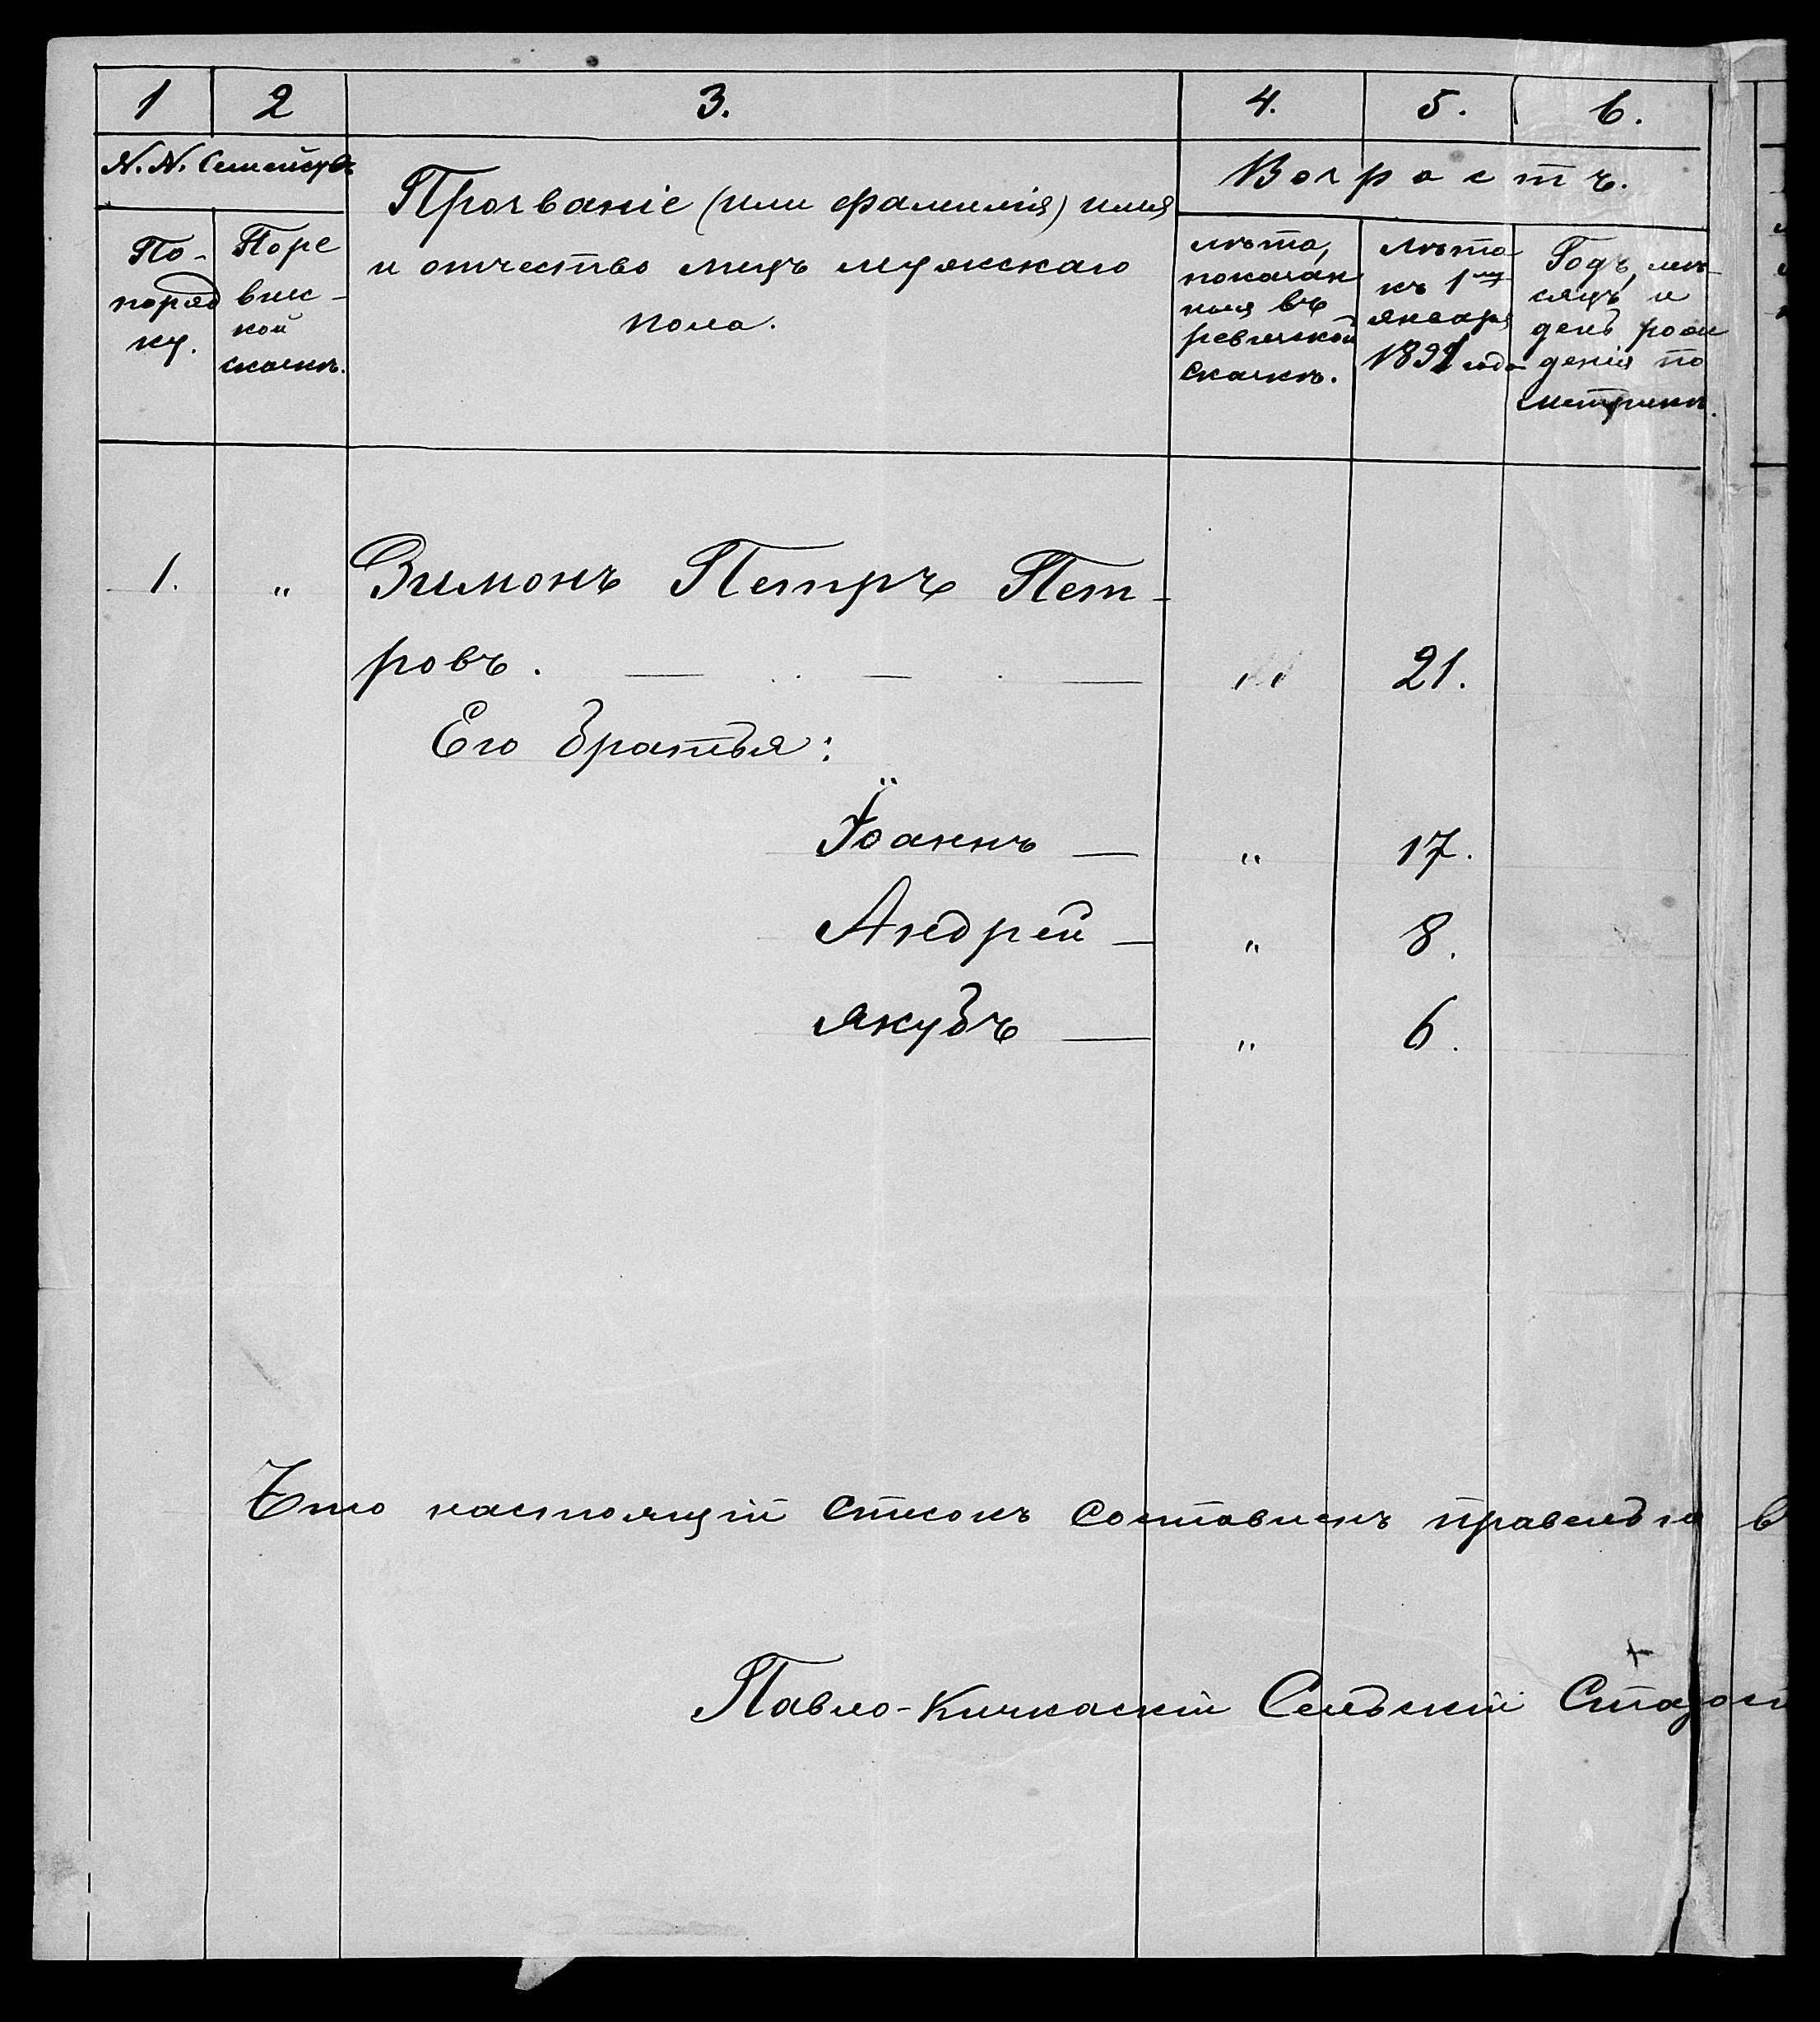 1 2 3. 4. 5. 6.
N. N. Семействъ
Прозваніе (или фамилія) имя
и отчество лицъ мужскаго
пола.
Возрастъ.
По-
поряд
ку.
По ре
виж-
кой
сказкѣ.
лѣта,
показан
ныя въ
ревизской
сказкѣ.
Лѣта
къ 1му
января
1891 года
Годъ, мѣ-
сяцъ и
день рож
денія по
метрикѣ.
1. „ Зимонъ Петръ Пет-
ровъ. — — — „ 21.
Его братья:
Іоаннъ — „ 17.
Андрей — „ 8.
Якубъ — „ 6.
Что настоящій список составленъ правельно в
Павло-Кичкаскій Сельскій Старост